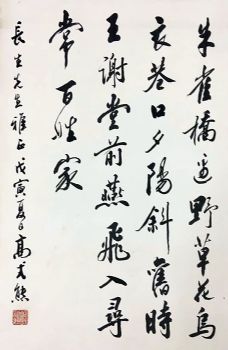 朱雀橋邊野草花烏
衣巷口夕陽斜舊時
王謝堂前燕飛入尋
常百姓家
長生先生雅正 戊寅夏日 高式熊